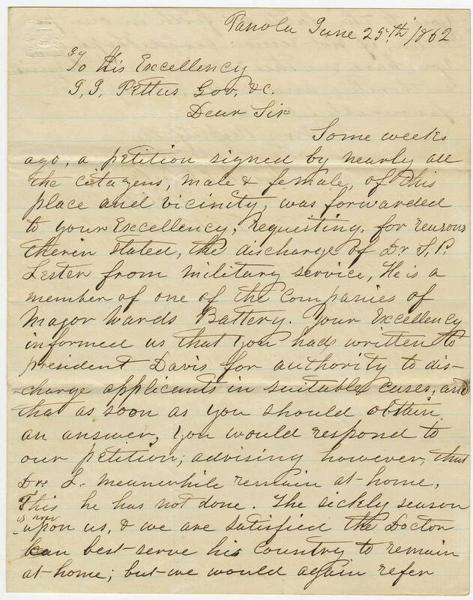 Panola June 25th, 1862
To His Excellency
J, J, Pettus Gov, &c.
Dear Sir
Some weeks
ago, a petition signed by nearly all
the citazens, male & female, of this
place and vicinity, was forwarded
to your Excellency, requesting, for reasons
therin stated, the discharge of Dr S, P.
Lester from military service, He is a
member of one of the Companies of
Major Wards Battery. Your Excellency
informed us that you had written to
President Davis for authority to dis-
-charge applicants in suitable cases, and
that as soon as you should obtain
an answer, you would respond to
our petition; advising however, that
Dr. L. meanwhile remain at home,
This he has not done. The sickly season
is now
upon us, & we are satisfied the Doctor
can best serve his Country to remain
at home; but we would again refer